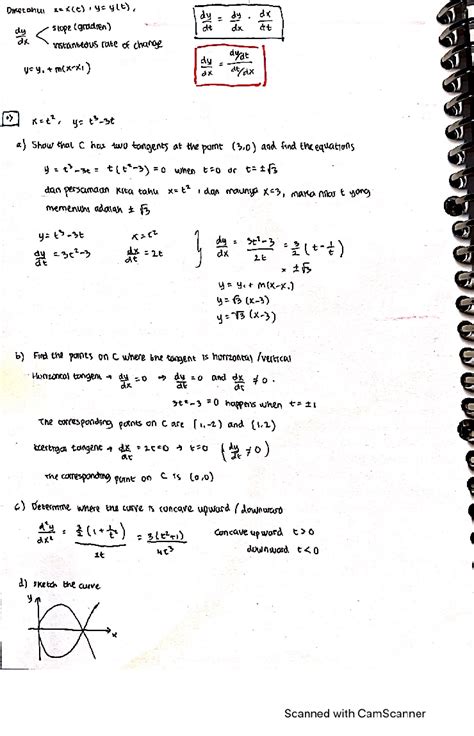 Diketahui x = x(t), y = y(t),
dy/dx < slope (gradien)
instantaneous rate of change
y = y₁ + m(x-x₁)
dy/dt = dy/dx · dx/dt
dy/dx = dy/dt / dt/dx
x = t², y = t³-3t
a) Show that C has two tangents at the point (3,0) and find the equations
y = t³-3t = t(t²-3) = 0 when t=0 or t = ±√3
dan persamaan kita tahu x=t², dan maunya x=3, maka nilai t yang
memenuhi adalah ±√3
y = t³-3t x = t²
dy/dt = 3t²-3 dx/dt = 2t } dy/dx = 3t²-3 / 2t = 3/2 (t - 1/t)
= ±√3
y = y₁ + m(x-x₁)
y = √3 (x-3)
y = -√3 (x-3)
b) Find the points on C where the tangent is horizontal / vertical
Horizontal tangent → dy/dx = 0 → dy/dt = 0 and dx/dt ≠ 0.
3t²-3 = 0 happens when t = ±1
The corresponding points on C are (1,-2) and (1,2)
Vertical tangent → dx/dt = 2t = 0 → t=0 (dy/dt ≠ 0)
The corresponding point on C is (0,0)
c) Determine where the curve is concave upward / downward
d²y/dx² = 3/2 (1 + 1/t²) / 2t = 3(t²+1) / 4t³ concave upward t > 0
downward t < 0
d) sketch the curve
y
x
Scanned with CamScanner